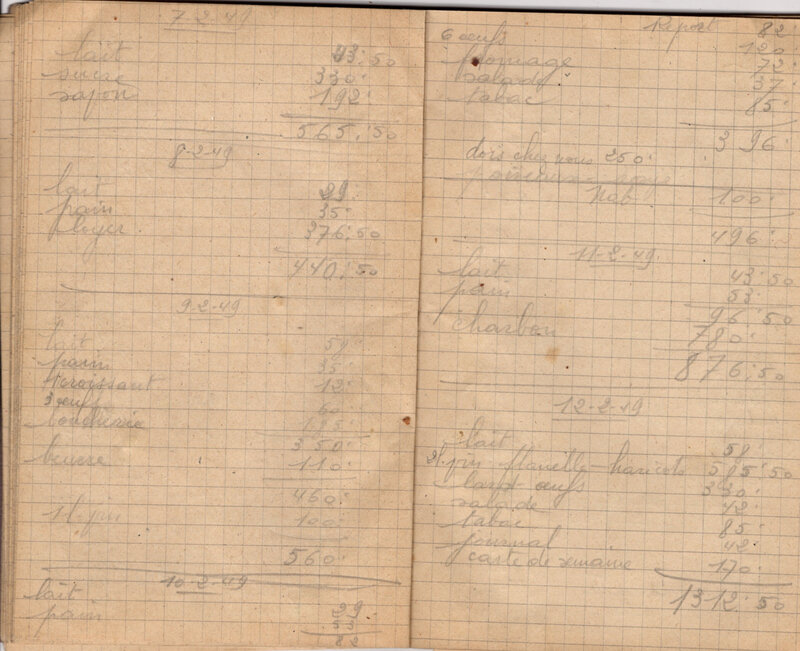 7-2-49
lait 43:50
sucre 330:
savon 192:
565:50
8-2-49
lait 29:
pain 35:
loyer 376:50
440:50
9-2-49
lait 58
pain 35:
1 croissant 12:
3 œufs 60
boucherie 185:
350:
beurre 110:
460:
1 l. pin 100:
560:
10-2-49
lait 29
pain 53
82
Report 82:
6 œufs 120
fromage 72:
salade 37:
tabac 85:
396:
dois chez nous 250:
100:
496:
11-2-49
lait 43:50
pain 53:
96:50
charbon 780:
876:50
12-2-49
lait 58:
2 l. pin flanelle-haricots 585:50
lard-œufs 330:
salade 42:
tabac 85:
journal 42:
carte de semaine 170:
1312:50